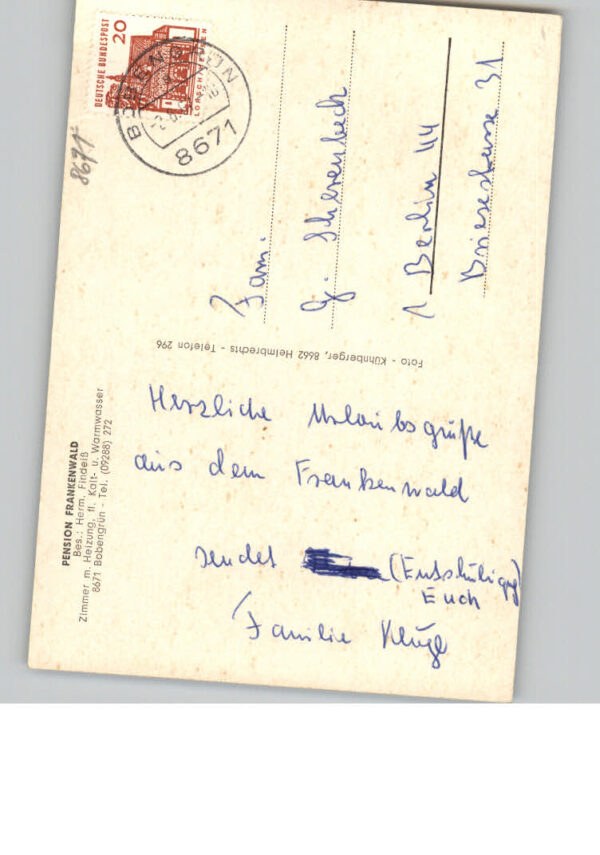 PENSION FRANKENWALD
Bes.: Herm. Findeiß
Zimmer m. Heizung, fl. Kalt- u. Warmwasser
8671 Bobengrün - Tel. (09288) 272
Herzliche Urlaubsgrüße
aus dem Frankenwald
sendet (Entschuldigung)
Euch
Familie Kluge
Foto - Kühnberger, 8662 Helmbrechts - Telefon 296
8671
DEUTSCHE BUNDESPOST
20
LORSCH/HESSEN
BOBENGRÜN
8671
Fam.
G. Scherenbeck
1 Berlin 44
Briesestrasse 31